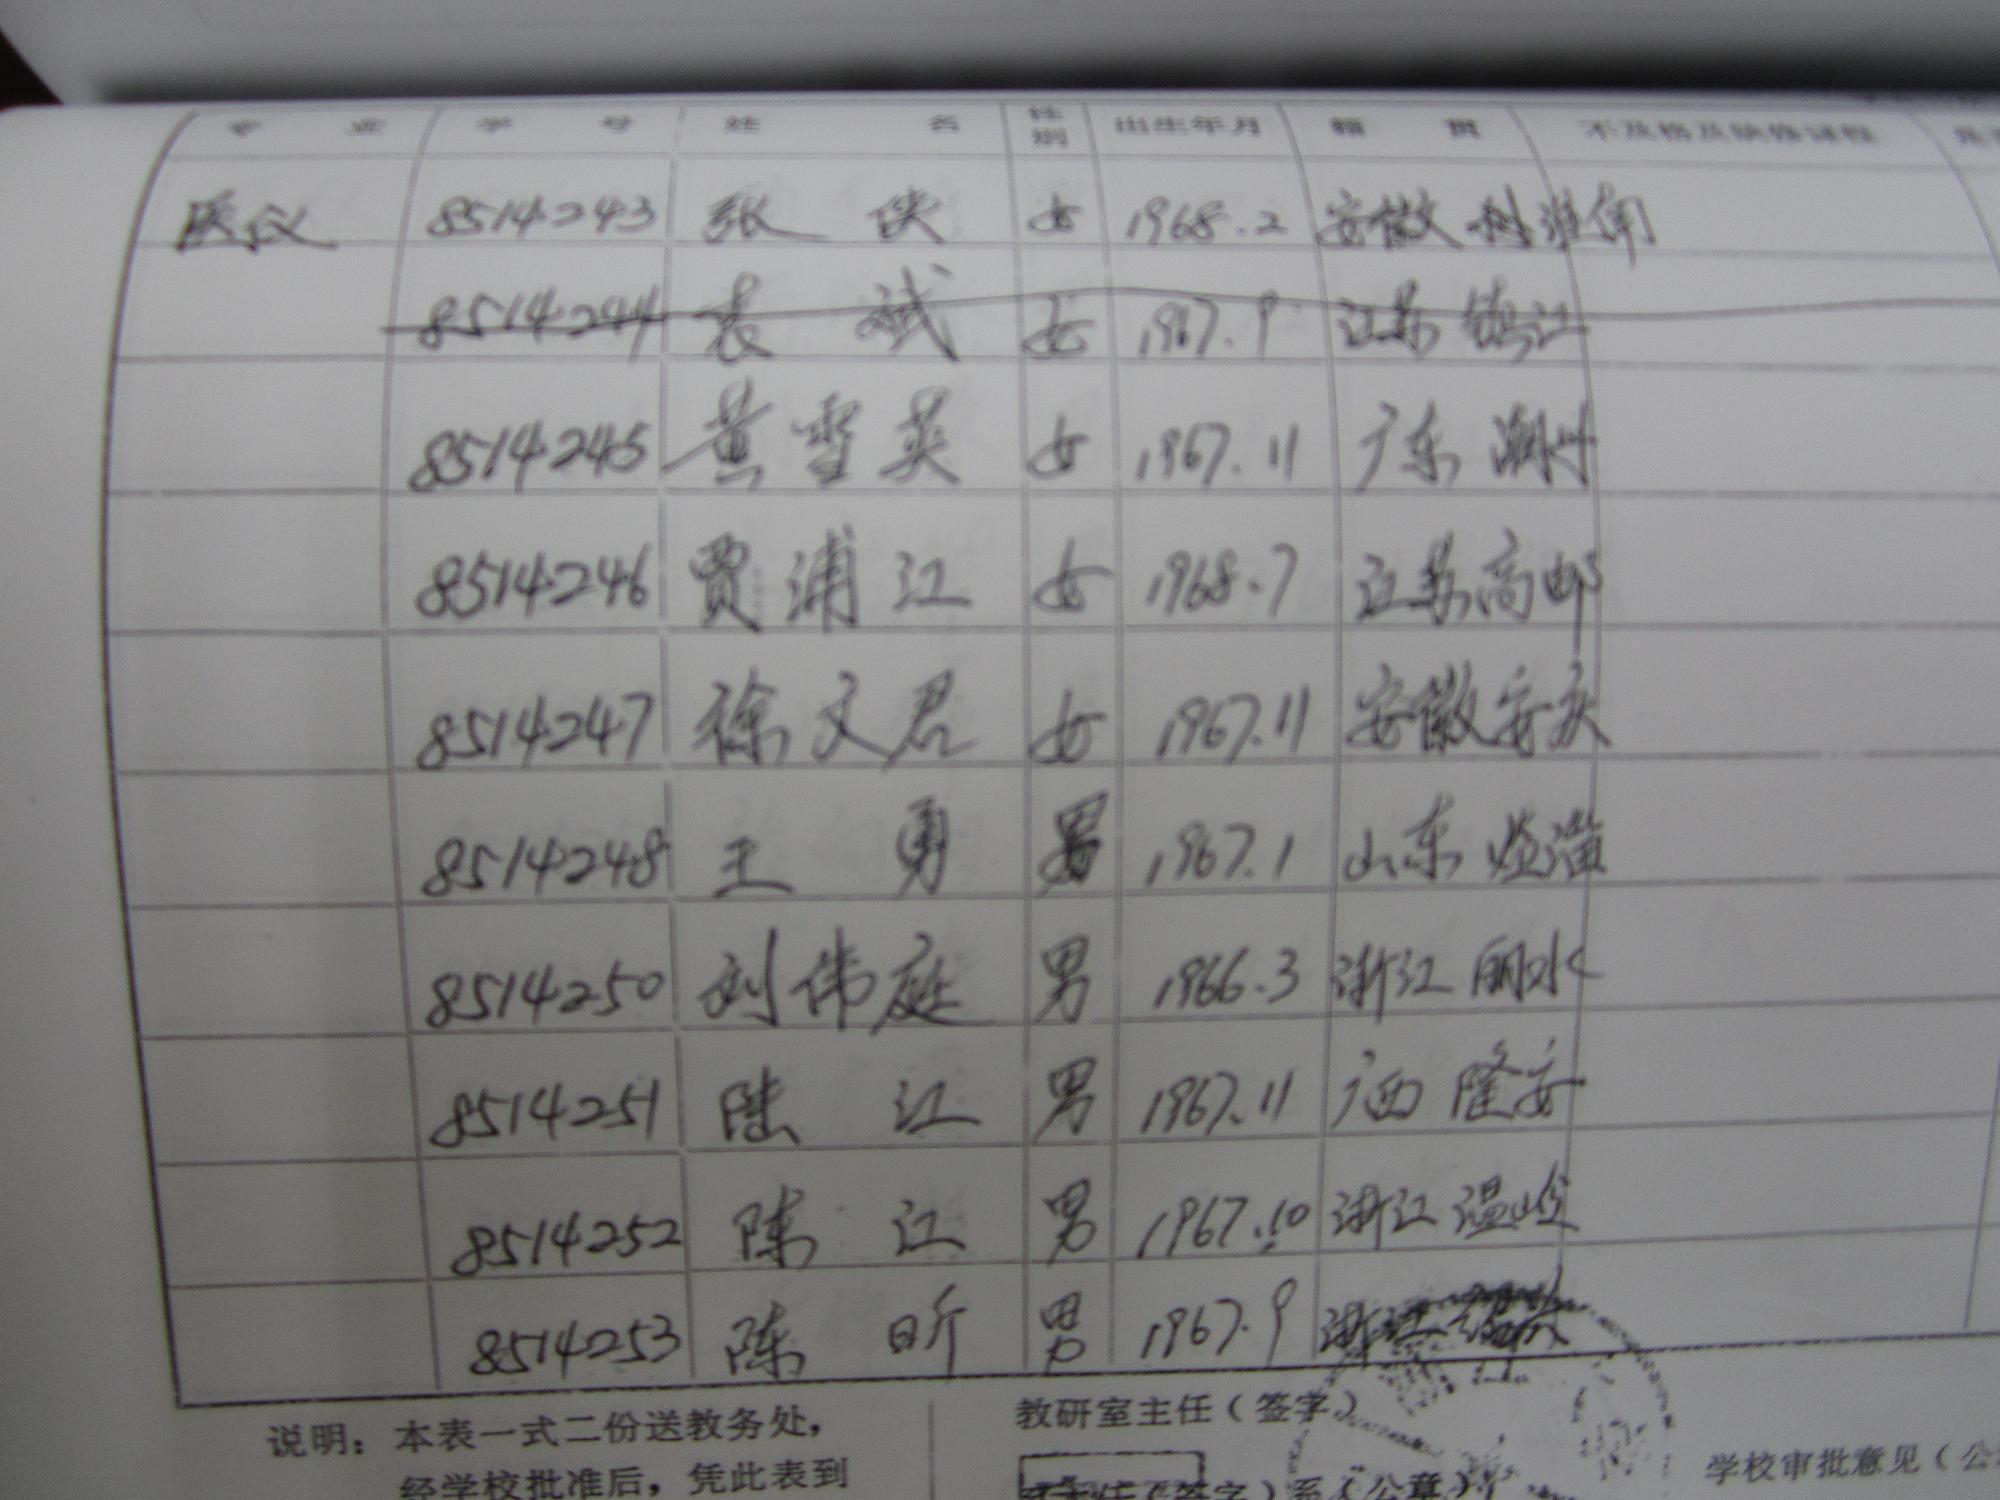 专 业 学 号 姓 名 性别 出生年月 籍 贯 不及格及缺修课程
医仪 8514243 张 侠 女 1968.2 安徽
8514244 袁 斌 女 1967.9 江苏 镇江
8514245 黄雪英 女 1967.11 广东 潮州
8514246 贾浦江 女 1968.7 江苏高邮
8514247 徐文君 女 1967.11 安徽安庆
8514248 王 勇 男 1967.1 山东 临淄
8514250 刘伟庭 男 1966.3 浙江 丽水
8514251 陆 江 男 1967.11 广西 隆安
8514252 陈 江 男 1967.10 浙江 温岭
8514253 陈 昕 男 1967.9 浙江 绍兴
说明：本表一式二份送教务处，
经学校批准后，凭此表到
教研室主任（签字）
（签字）系（公章）
学校审批意见（公